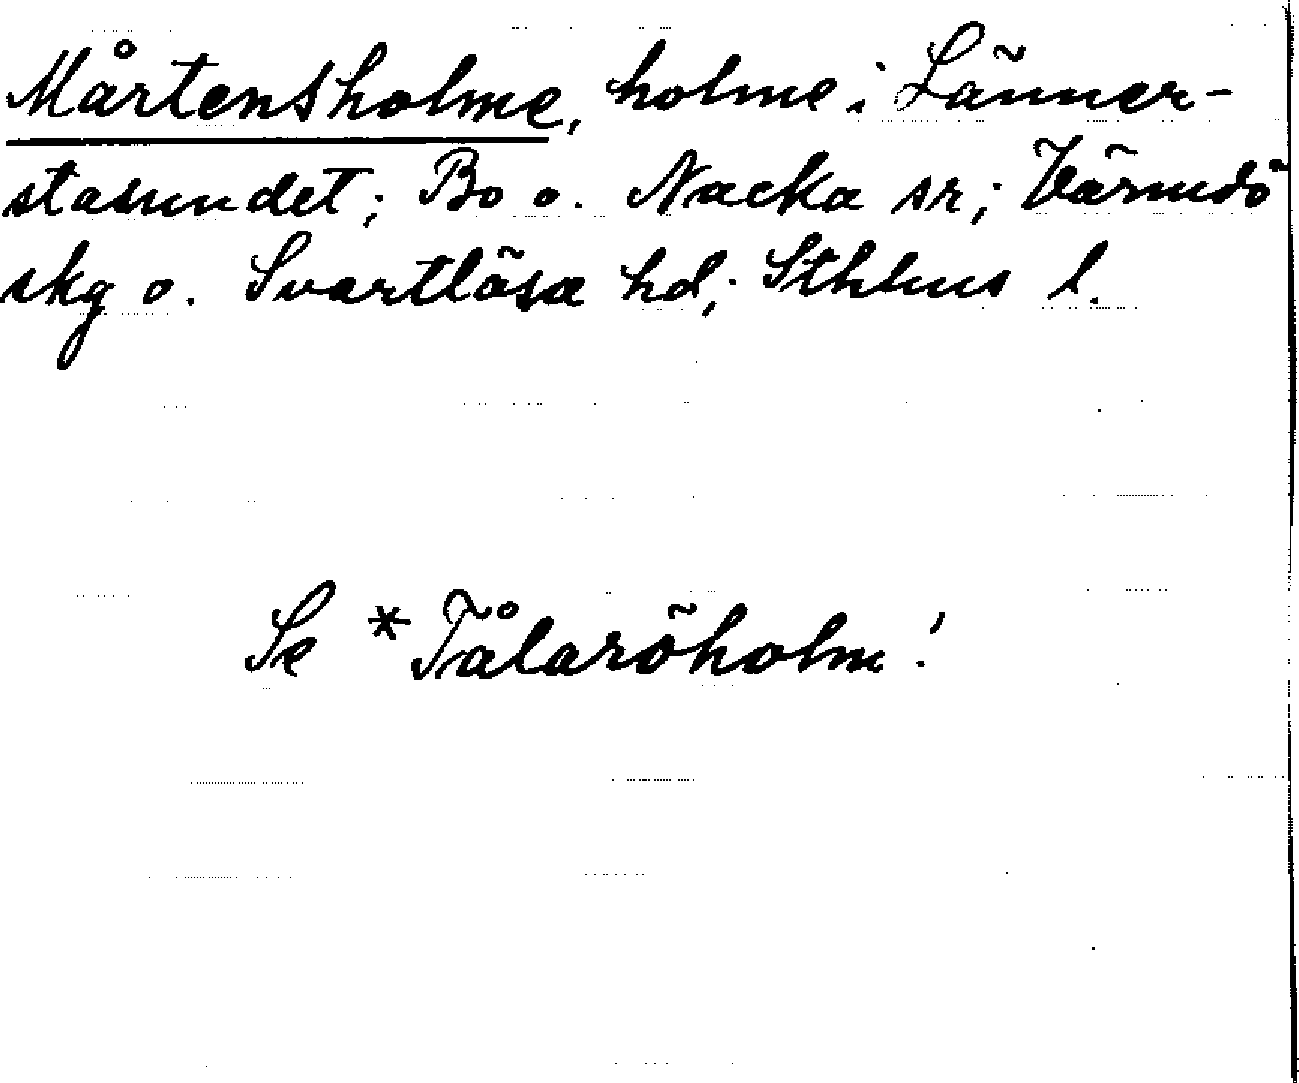 Mårtensholme, holme i Länner-
stasundet; Bo o. Nacka sr; Värmdö
skg o. Svartlösa hd; Sthlms l.
Se *Tålaröholm!